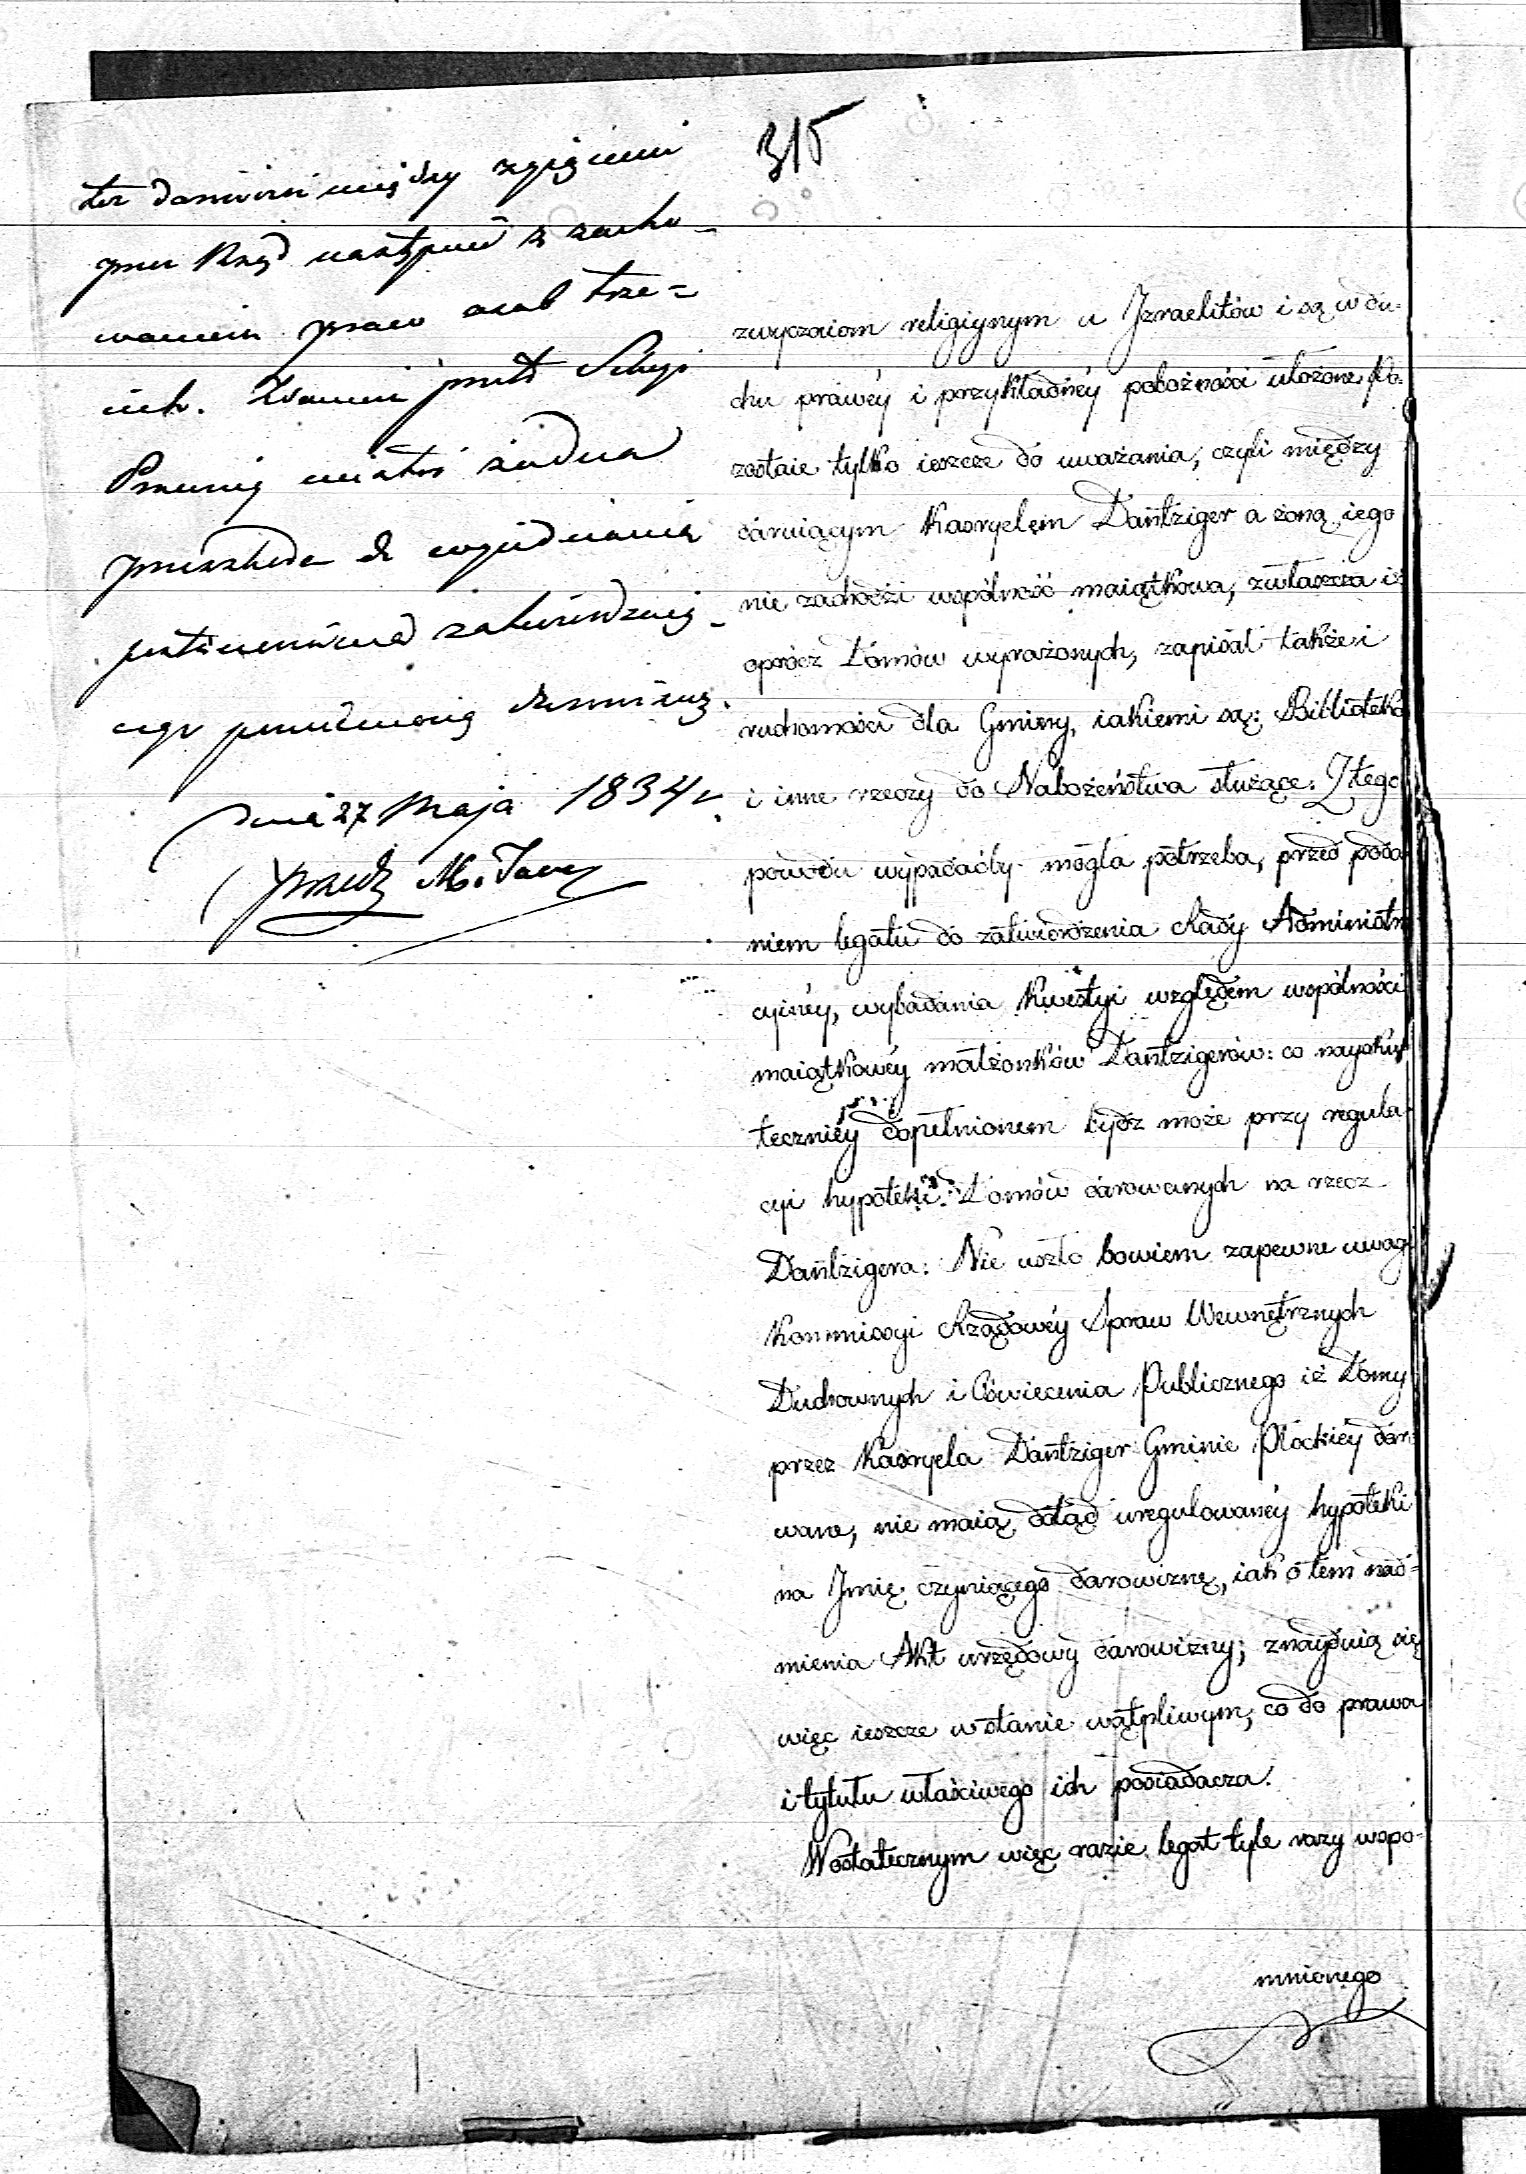 315
też darowizn między żyjącymi
przez Rząd nastąpić z zacho-
waniem praw osób trze=
cich. Zdaniem przeto
żadna
przeszkoda do wyjednania
zatwierdzenia

dnia 27 Maja 1834 r.
zwyczaiom religiynym u Izraelitów i są w du-
chu prawéy i przykładnéy pobożności ułożone. Po-
zostaie tylko ieszcze do uważania, czyli między
daruiącym Kasryelem Dantziger a żoną iego
nie zachodzi wspólność maiątkowa, zwłaszcza iż
oprócz Domów wyrażonych, zapisał także i
ruchomości dla Gminy, iakiemi są: Biblioteka
i inne rzeczy do Nabożeństwa służące. Z tego
powodu wypadaćby mogła potrzeba, przed poda
niem legatu do zatwierdzenia Rady Administra
cyinéy, wybadania kwestyi względem wspólności
maiątkowéy małżonków Dantzigerów: co nayskut
teczniéy dopełnionem bydź może przy regula-
cyi hypoteki Domów darowanych na rzecz
Dantzigera. Nie uszło bowiem zapewne uwagi
Kommissyi Rządowéy Spraw Wewnętrznych
Duchownych i Oświecenia Publicznego iż Domy
przez Kasryela Dantziger Gminie Płockiéy daro
wane, nie maią dotąd uregulowanéy hypoteki
na Imię czyniącego darowiznę, iak o tem nad=
mienia Akt urzędowy darowizny; znayduią się
więc ieszcze w stanie wątpliwym, co do prawa
i tytułu właściwego ich posiadacza.
W ostatecznym więc razie legat tyle razy wspo-
mnionego